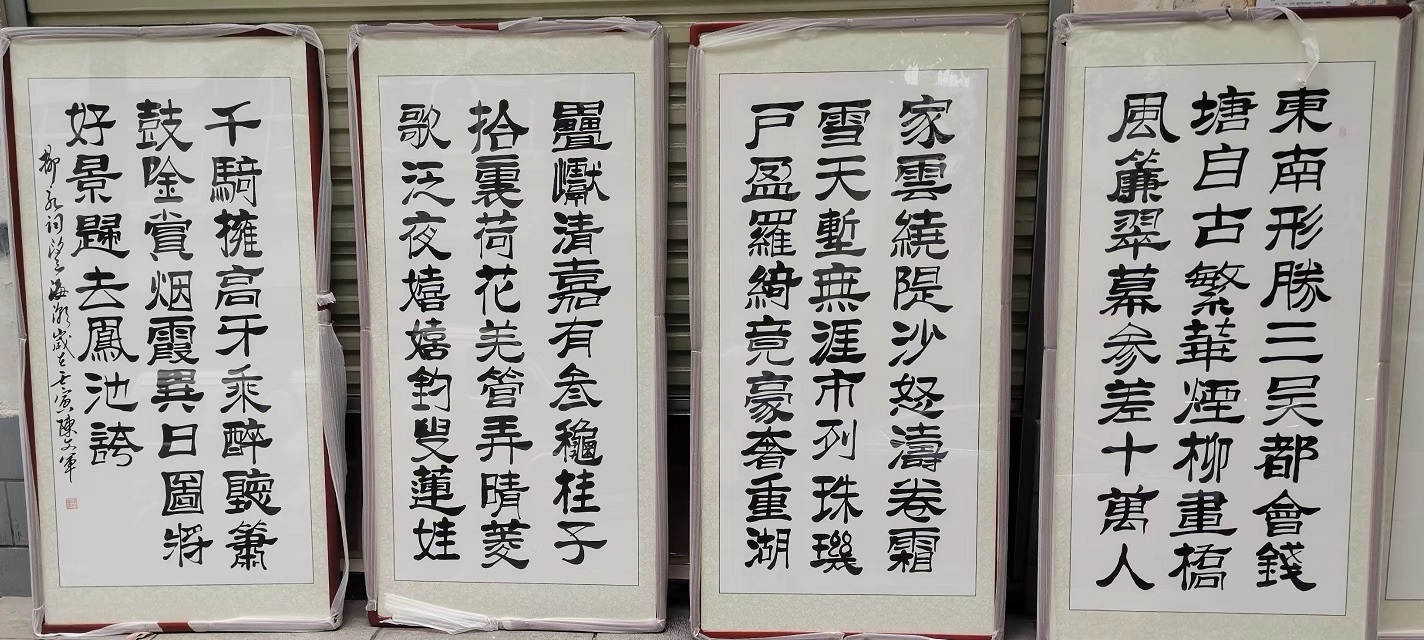 東南形勝三吳都會錢
塘自古繁華煙柳畫橋
風簾翠幕参差十萬人
家雲繞隄沙怒濤卷霜
雪天塹無涯市列珠璣
戶盈羅綺竟豪奢重湖
疊巘清嘉有叁穐桂子
拾裏荷花羌管弄晴菱
歌泛夜嬉嬉釣叟蓮娃
千騎擁高牙乘醉聽簫
鼓唫賞烟霞異日圖將
好景歸去鳳池誇
柳永詞望海潮歲在壬寅陳文軍